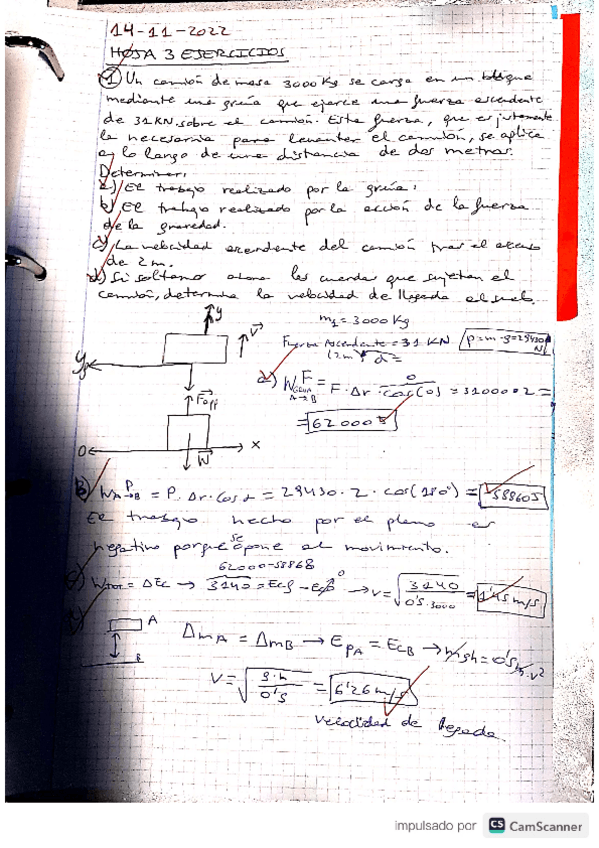 14-11-2022
HOJA 3 EJERCICIOS
1 Un camión de masa 3000 Kg se carga en un buque
mediante una grúa que ejerce una fuerza ascendente
de 31 KN sobre el camión. Esta fuerza, que es justamente
la necesaria para levantar el camión, se aplica
a lo largo de una distancia de dos metros.
Determinar:
a) El trabajo realizado por la grúa.
b) El trabajo realizado por la acción de la fuerza
de la gravedad.
c) La velocidad ascendente del camión tras el
de 2m.
d) Si soltamos ahora las cuerdas que sujetan el
camión, determina la velocidad de llegada al suelo.
y
V
m₁ = 3000 Kg
Fuerza Ascendente = 31 KN
P=m·g=29430 N
y
(2m
a) W F = F · Δr · cos(0) = 31000 · 2 =
A→B
= 62000 J
0
x
W
B) W P A→B = P · Δr · cos α = 29430 · 2 · cos(180°) = -58860J
El trabajo hecho por el
negativo porque se opone al movimiento.
62000-58868
WTOT = ΔEc → 3140 = Ecf - Ec 0 → v = √ 3140 / 0'5·3000 = 1'45 m/s
A
B
ΔmA = ΔmB → EpA = EcB → mgh = 0'5 m·v²
V = √ g·h / 0'5 = 6'26 m/s
Velocidad de llegada.
impulsado por CS CamScanner